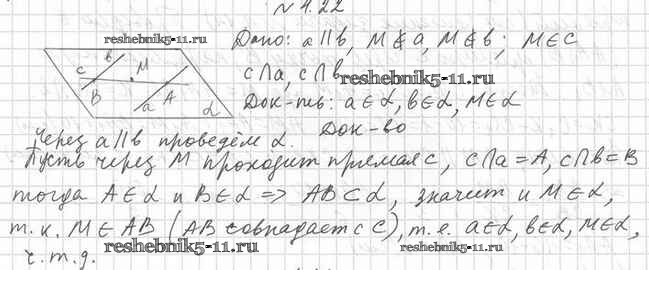 № 4.22
reshebnik5-11.ru
Дано: a∥b, M∉a, M∉b; M∈c
c∩a, c∩b
reshebnik5-11.ru
Док-ть: a∈α, b∈α, M∈α
c b M B a A α
Док-во
Через a∥b проведём α.
Пусть через M проходит прямая c, c∩a=A, c∩b=B
тогда A∈α и B∈α => AB⊂α, значит и M∈α,
т.к. M∈AB (AB совпадает с c), т.е. a∈α, b∈α, M∈α,
reshebnik5-11.ru
reshebnik5-11.ru
ч.т.д.